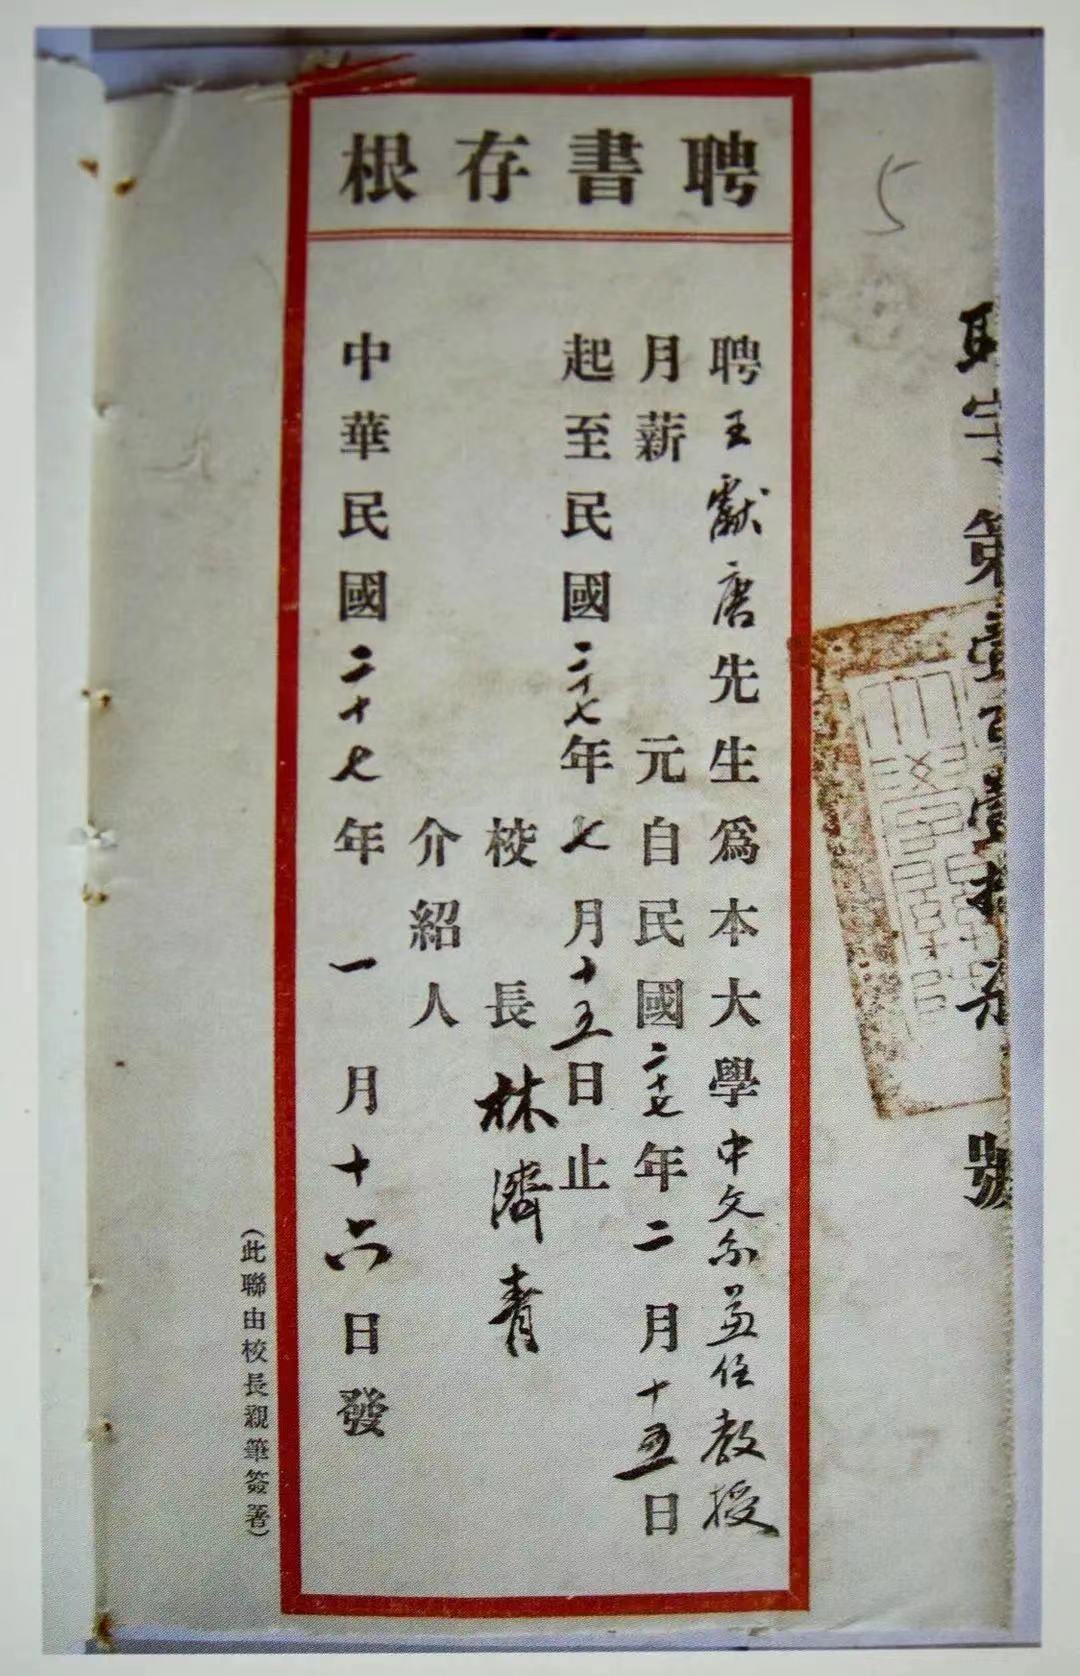 5
聘字第壹百壹拾柒號
聘書存根
聘王獻唐先生爲本大學中文系兼任教授
月薪 元自民國二十七年二月十五日
起至民國二十七年七月十五日止
校長林濟青
介紹人
中華民國二十七年一月十六日發
(此聯由校長親筆簽署)